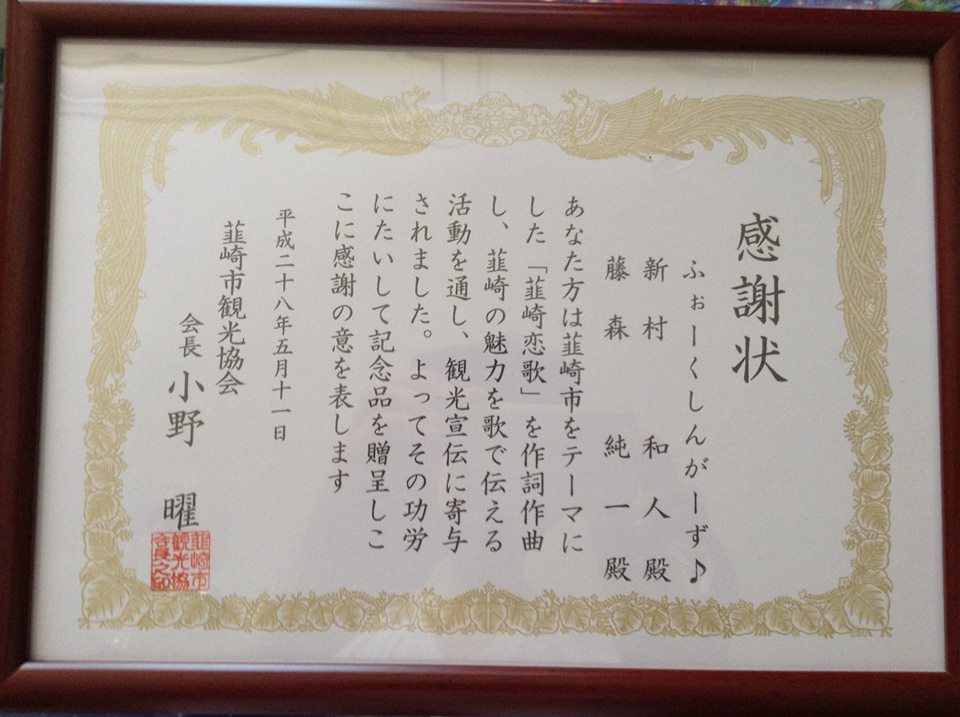 感謝状
ふぉーくしんがーず♪
新村 和人 殿
藤森 純一 殿
あなた方は韮崎市をテーマに
した「韮崎恋歌」を作詞作曲
し、韮崎の魅力を歌で伝える
活動を通し、観光宣伝に寄与
されました。よってその功労
にたいして記念品を贈呈しこ
こに感謝の意を表します
平成二十八年五月十一日
韮崎市観光協会
会長 小野 曜
韮崎市
観光協
会長之印